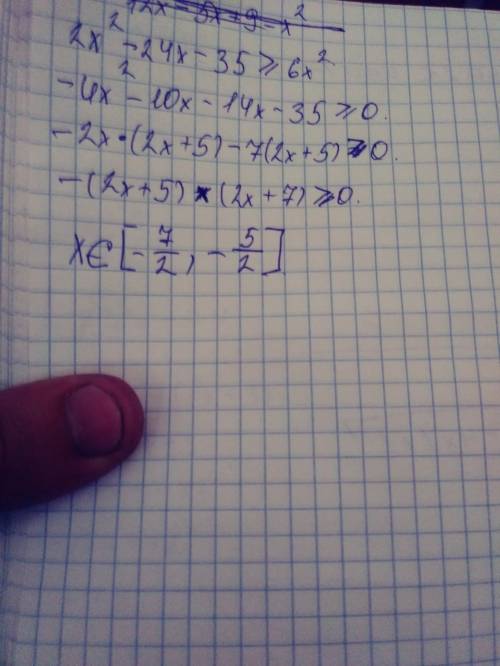 2x² - 24x - 35 ⩾ 6x²
-4x² - 10x - 14x - 35 ⩾ 0.
-2x·(2x+5) - 7(2x+5) ⩾ 0.
-(2x+5) × (2x+7) ⩾ 0.
x∈[-7/2, -5/2]